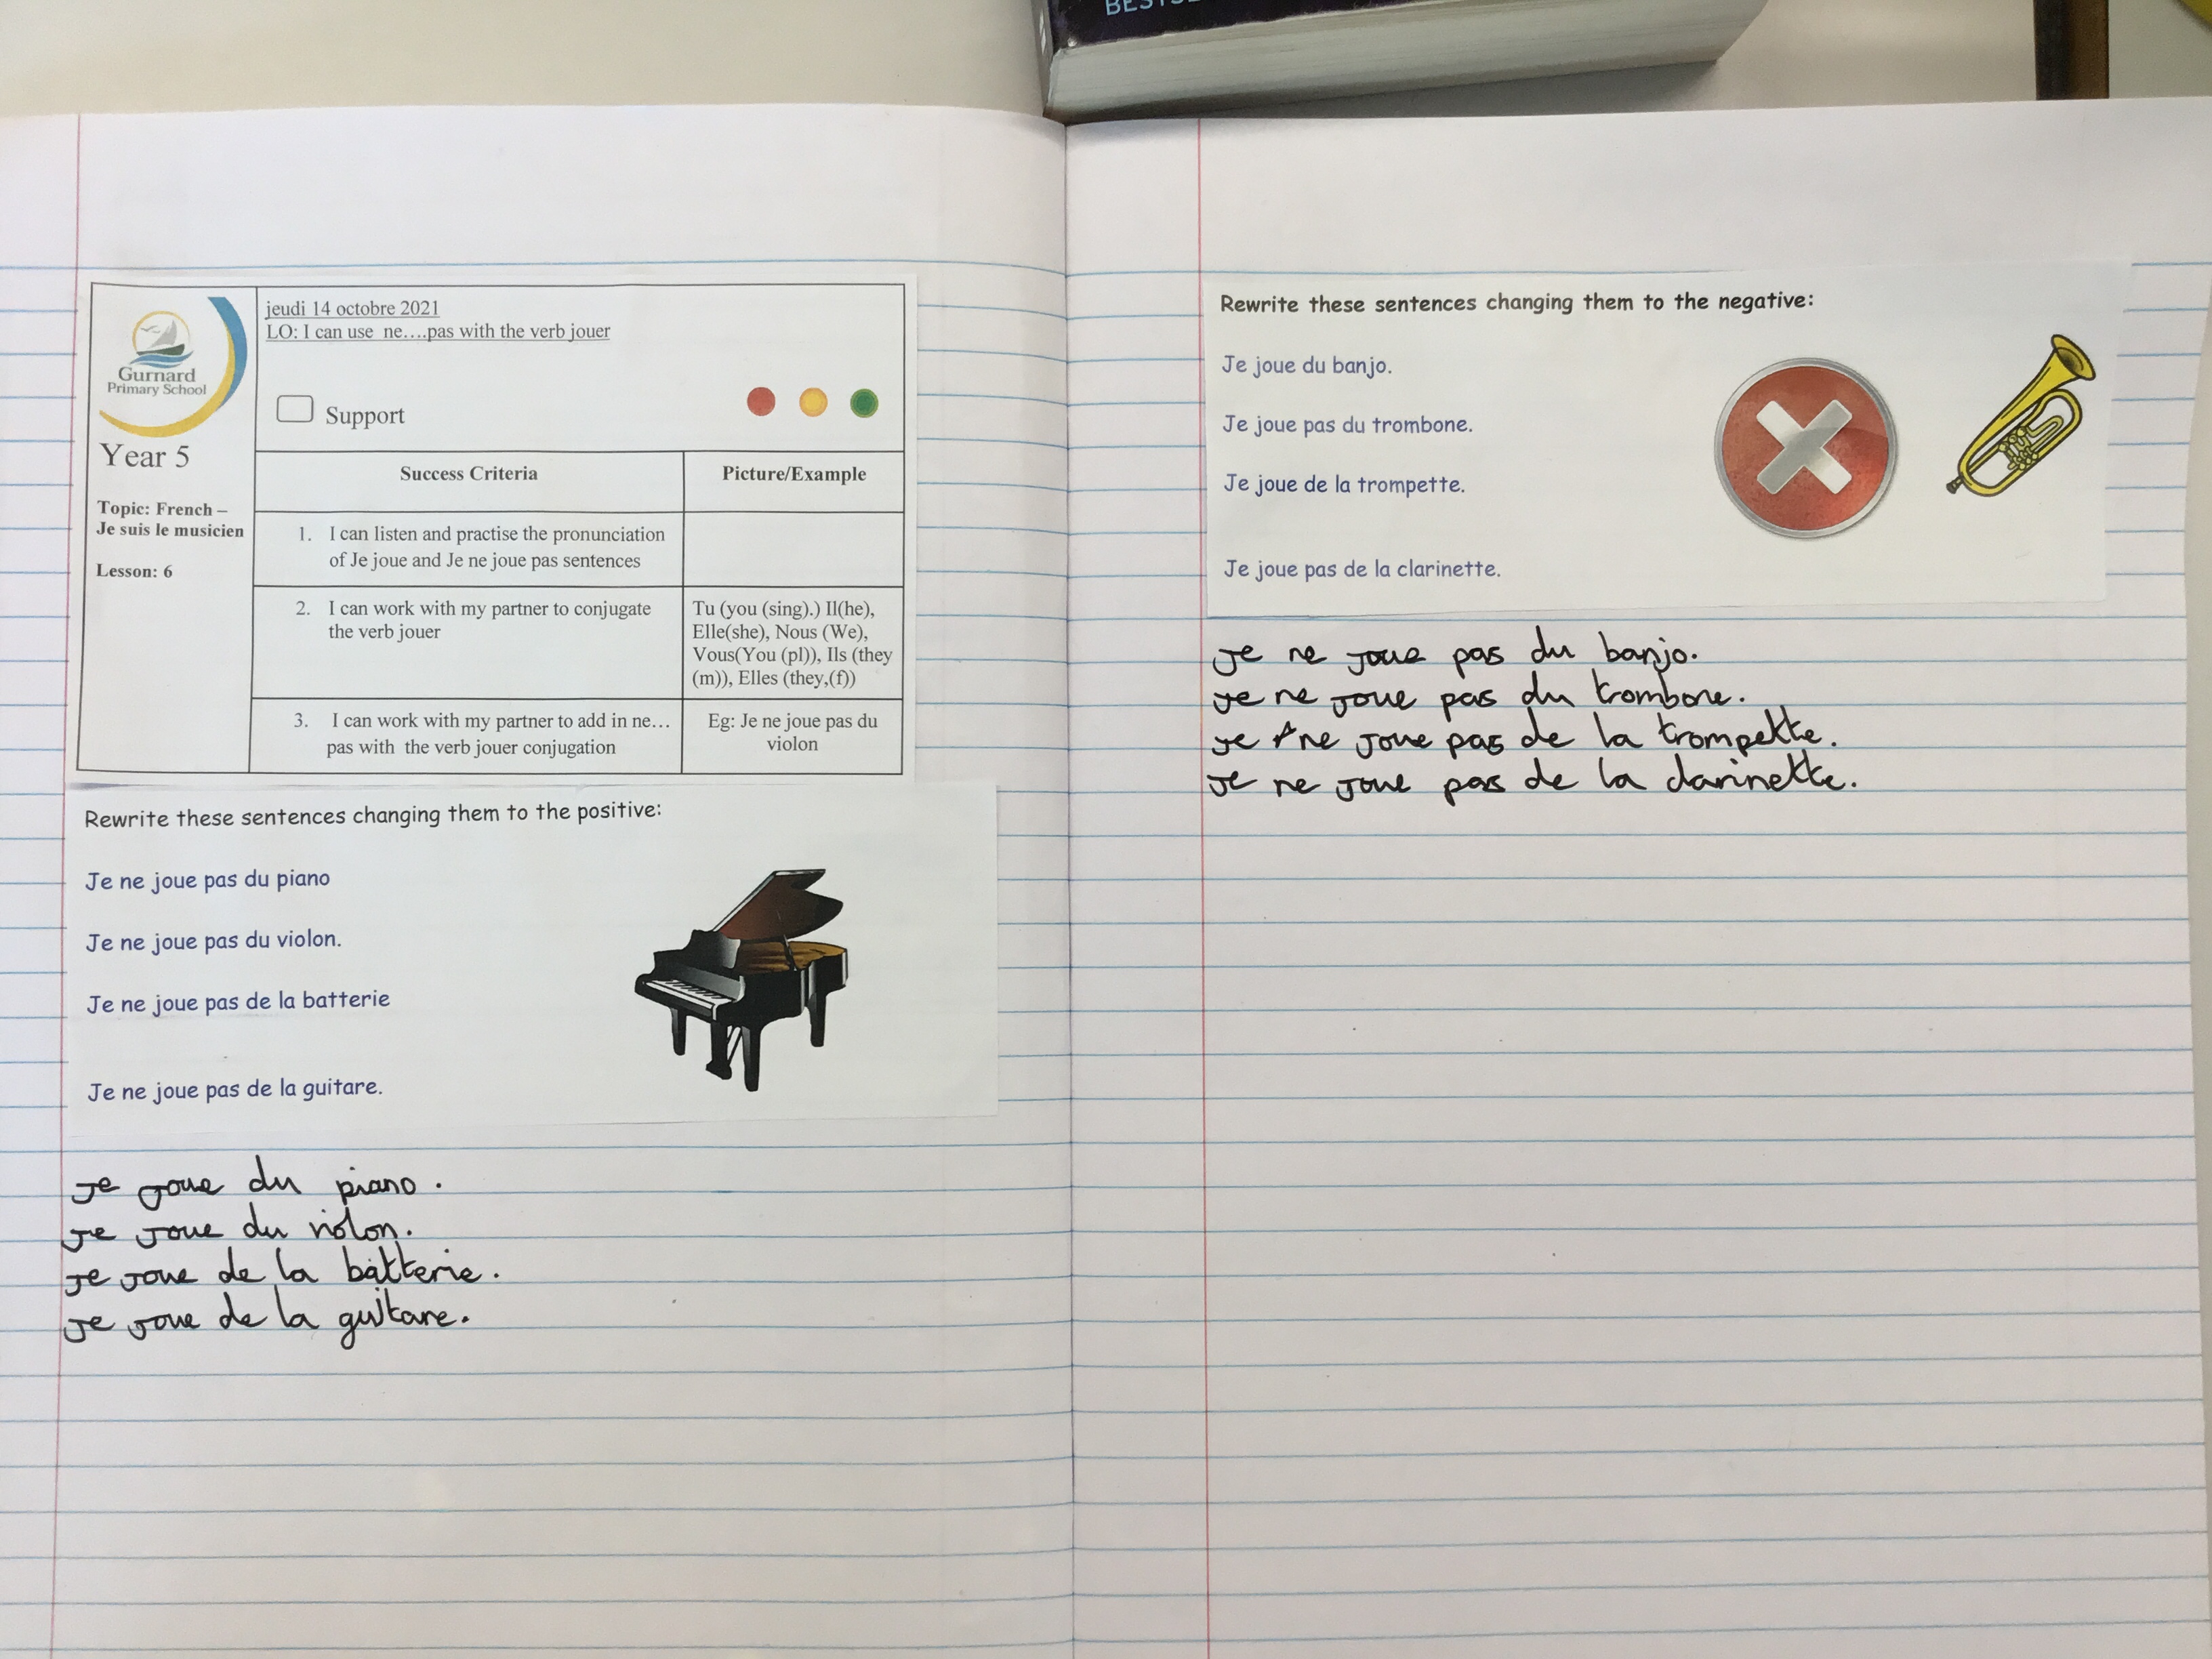 BEST
jeudi 14 octobre 2021
LO: I can use ne....pas with the verb jouer
Gurnard
Primary School
Support
Year 5
Topic: French –
Je suis le musicien
Lesson: 6
Success Criteria
Picture/Example
1. I can listen and practise the pronunciation
of Je joue and Je ne joue pas sentences
2. I can work with my partner to conjugate
the verb jouer
Tu (you (sing).) Il(he),
Elle(she), Nous (We),
Vous(You (pl)), Ils (they
(m)), Elles (they,(f))
3. I can work with my partner to add in ne…
pas with the verb jouer conjugation
Eg: Je ne joue pas du
violon
Rewrite these sentences changing them to the positive:
Je ne joue pas du piano
Je ne joue pas du violon.
Je ne joue pas de la batterie
Je ne joue pas de la guitare.
Je joue du piano.
Je joue du violon.
Je joue de la batterie.
Je joue de la guitare.
Rewrite these sentences changing them to the negative:
Je joue du banjo.
Je joue pas du trombone.
Je joue de la trompette.
Je joue pas de la clarinette.
Je ne joue pas du banjo.
Je ne joue pas du trombone.
Je ne joue pas de la trompette.
Je ne joue pas de la clarinette.